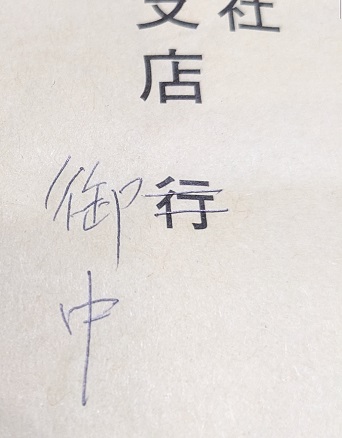 社
支店 行
御中